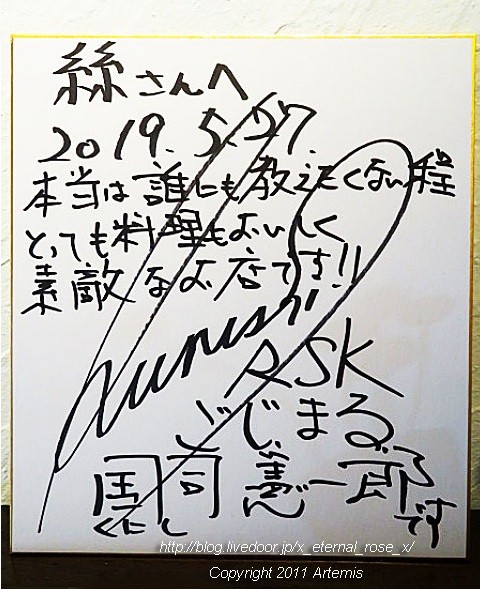 絲さんへ
2019.5.27.
本当は誰にも教えたくない程
とっても料理もおいしく
素敵なお店です!!
Kunishi
RSK
ごじまる
國司憲一郎
くにし です
http://blog.livedoor.jp/x_eternal_rose_x/
Copyright 2011 Artemis